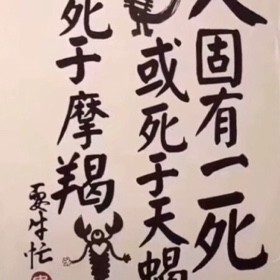 人固有一死
或死于天蝎
死于摩羯
要牛忙